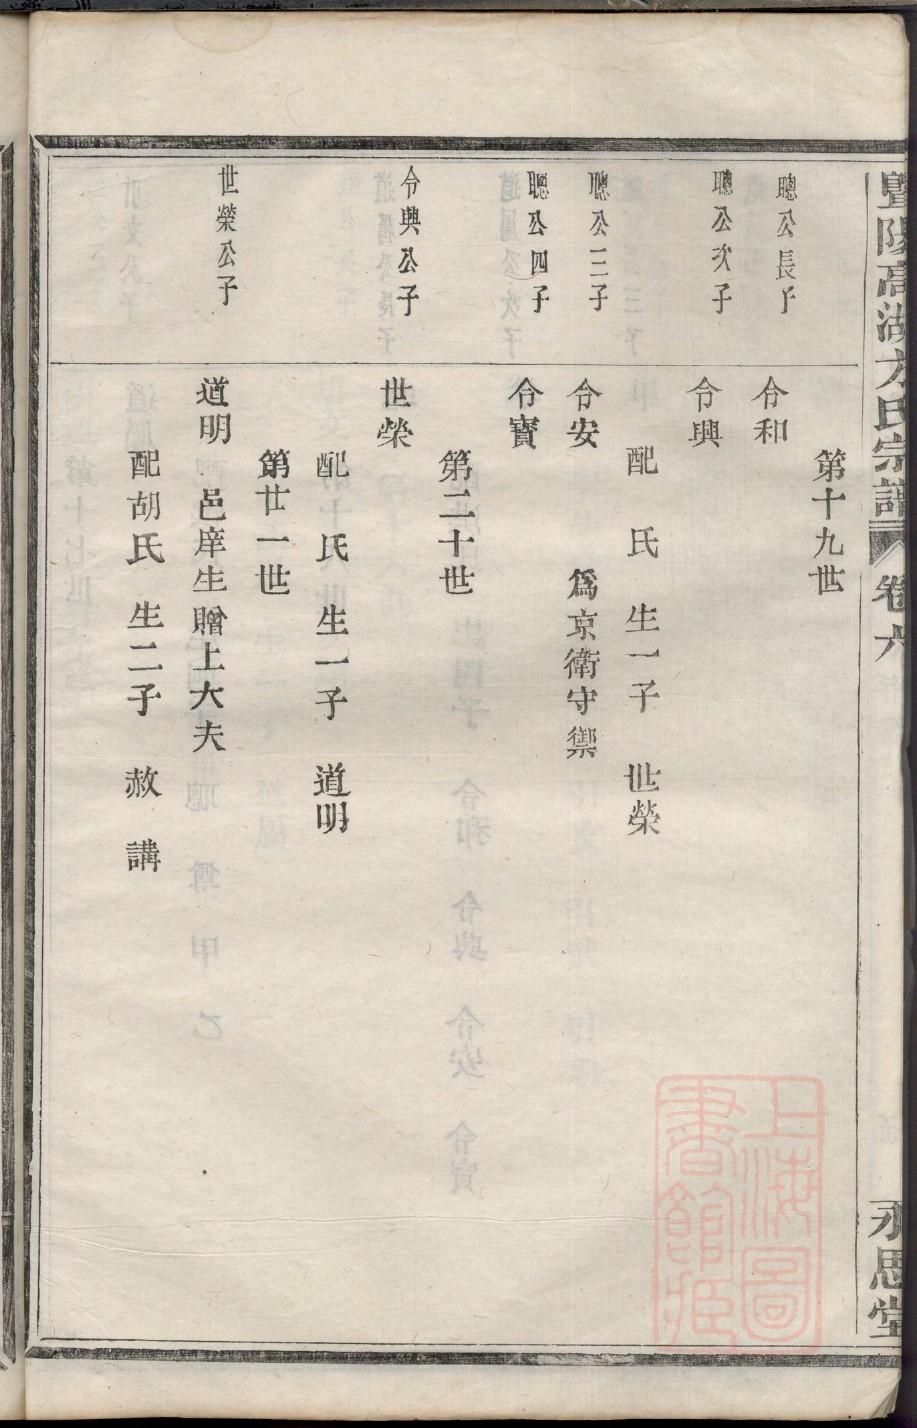 暨陽高湖方氏宗譜
卷六
永思堂
第十九世
聰公長子
令和
聰公次子
令興
配 氏 生一子 世榮
聰公三子
令安 為京衛守禦
聰公四子
令寶
第二十世
令興公子
世榮
配 氏 生一子 道明
第廿一世
世榮公子
道明 邑庠生贈上大夫
配胡氏 生二子 赦 講
上海圖書館藏